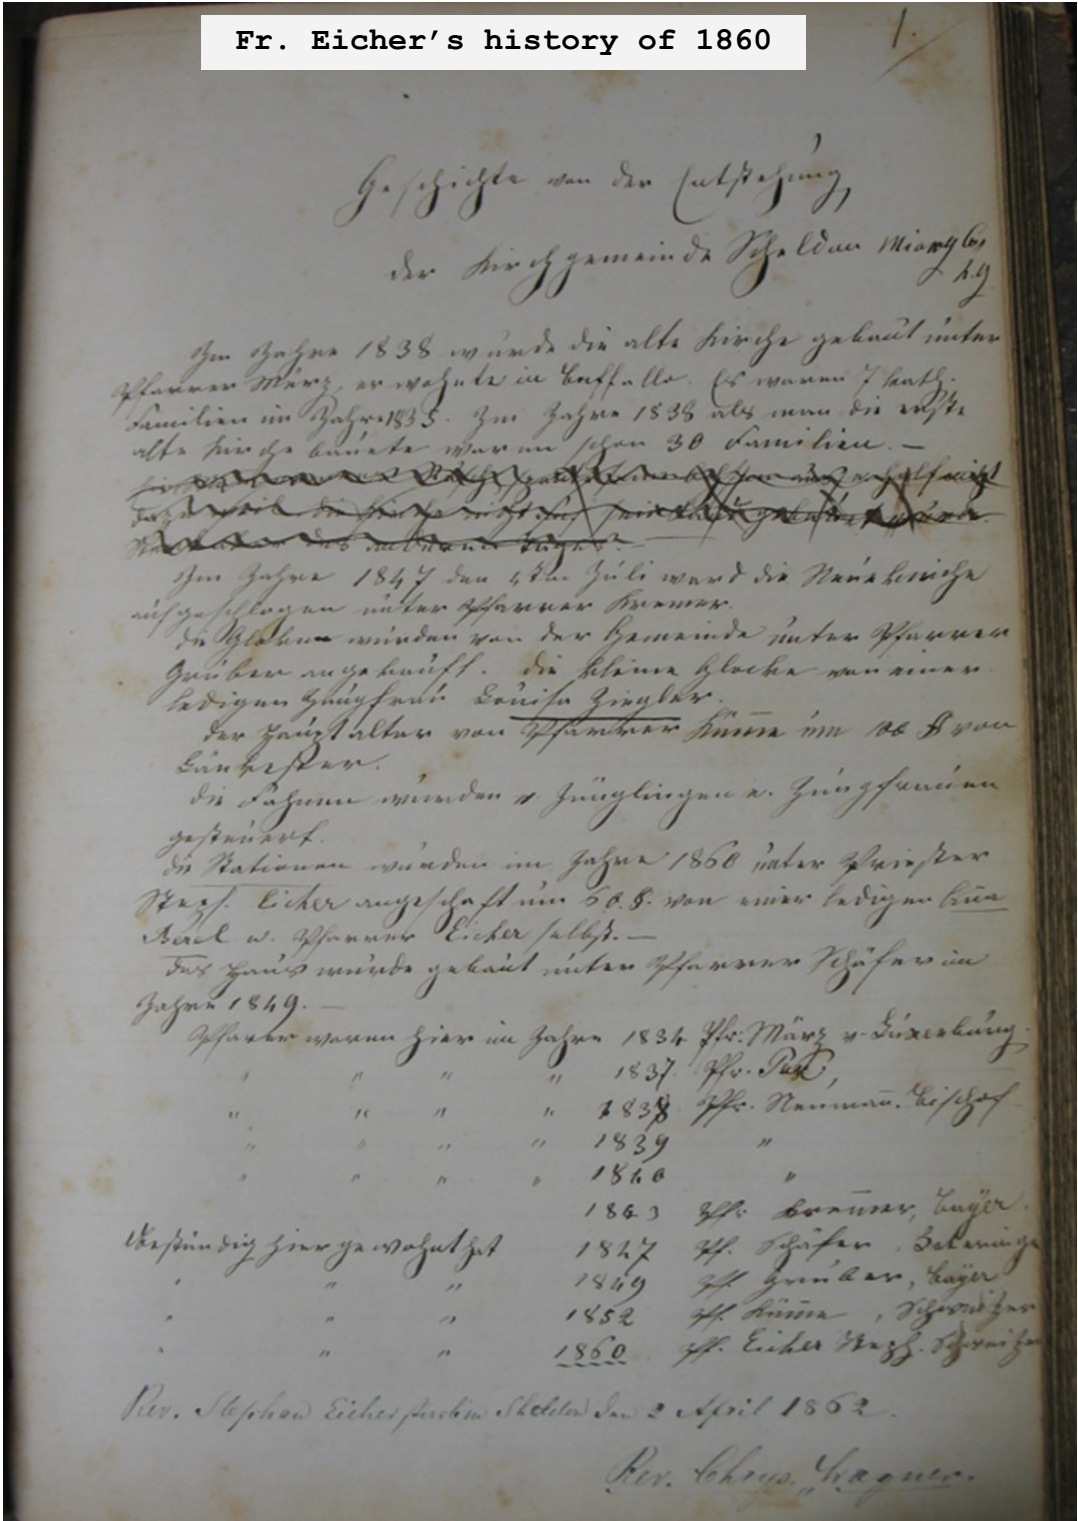 Fr. Eicher's history of 1860
1.
Geschichte von der Entstehung
der Kirchgemeinde Scheldon
Im Jahre 1838 wurde die alte Kirche gebaut unter
Pfarrer März, er wohnte in Buffallo. Es waren 7 kath.
Familien im Jahre 1835. Im Jahre 1838 als man die erste
alte Kirche bauete waren schon 30 Familien. —
Im Jahre 1847 den Juli ward die Neue Kirche
aufgeschlagen unter Pfarrer Kremer.
die Gloken wurden von der Gemeinde unter Pfarrer
Gruber angekauft. die kleine Glocke von einer
ledigen Jungfrau Louisa Ziegler.
der Hauptaltar von Pfarrer Küm̅e um $ von
die Fahnen wurden v. Jünglingen u. Jungfrauen
gesteuert.
die Stationen wurden im Jahre 1860 unter Priester
Steph. Eicher angeschaft um 60.$. von einer ledigen
u. Pfarrer Eicher selbst. —
das Haus wurde gebaut unter Pfarrer Schäfer im
Jahre 1849. —
Pfarer waren hier im Jahre 1834 Pfr: März v. Luxenburg.
" " " " 1837. Pfr. Pax,
" " " " 1838 Pfr. Neuman̅. Bischof
" " " " 1839 "
" " " " 1840 "
1843 Pfr. Krem̅er, Bayer.
Beständig hier gewohnt hat 1847 Pf. Schäfer,
" " " 1849 Pf. Gruber, Bayer
" " " 1852 Pf. Küm̅e, Schweitzer
" " " 1860 Pf. Eicher Steph. Schweitzer
Rev. Stephan Eicher Sheldon den 2 April 1862.
Rev. Chrys. Wagner.